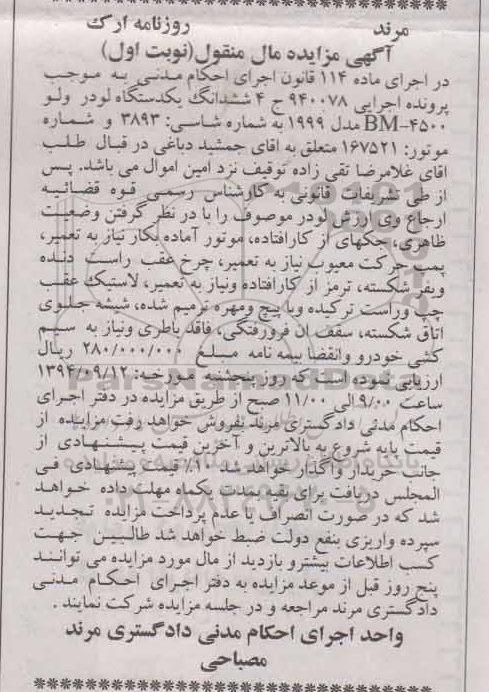 مرند روزنامه ارک
آگهی مزایده مال منقول(نوبت اول)
در اجرای ماده ۱۱۴ قانون اجرای احکام مدنی به موجب
پرونده اجرایی ۹۴۰۰۷۸ ج ۴ ششدانگ یکدستگاه لودر ولو
BM-۴۵۰۰ مدل ۱۹۹۹ به شماره شاسی: ۳۸۹۳ و شماره
موتور: ۱۶۷۵۲۱ متعلق به اقای جمشید دباغی در قبال طلب
اقای غلامرضا تقی زاده توقیف نزد امین اموال می باشد. پس
از طی تشریفات قانونی به کارشناس رسمی قوه قضائیه
ارجاع وی ارزش لودر موصوف را با در نظر گرفتن وضعیت
ظاهری، جکهای از کارافتاده، موتور آماده بکار نیاز به تعمیر،
پمپ حرکت معیوب نیاز به تعمیر، چرخ عقب راست دنده
وبغر شکسته، ترمز از کارافتاده ونیاز به تعمیر، لاستیک عقب
چپ وراست ترکیده وبا پیچ ومهره ترمیم شده، شیشه جلوی
اتاق شکسته، سقف ان فرورفتگی، فاقد باطری ونیاز به سیم
کشی خودرو وانقضا بیمه نامه مبلغ ۲۸۰/۰۰۰/۰۰۰ ریال
ارزیابی نموده است که روز پنجشنبه مورخه: ۱۳۹۴/۰۹/۱۲
ساعت ۹/۰۰ الی ۱۱/۰۰ صبح از طریق مزایده در دفتر اجرای
احکام مدنی دادگستری مرند بفروش خواهد رفت مزایده از
قیمت پایه شروع به بالاترین و آخرین قیمت پیشنهادی از
جانب خریدار واگذار خواهد شد ۱۰٪ قیمت پیشنهادی فی
المجلس دریافت برای بقیه بمدت یکماه مهلت داده خواهد
شد که در صورت انصراف یا عدم پرداخت مزایده تجدید
سپرده واریزی بنفع دولت ضبط خواهد شد طالبین جهت
کسب اطلاعات بیشترو بازدید از مال مورد مزایده می توانند
پنج روز قبل از موعد مزایده به دفتر اجرای احکام مدنی
دادگستری مرند مراجعه و در جلسه مزایده شرکت نمایند .
واحد اجرای احکام مدنی دادگستری مرند
مصباحی